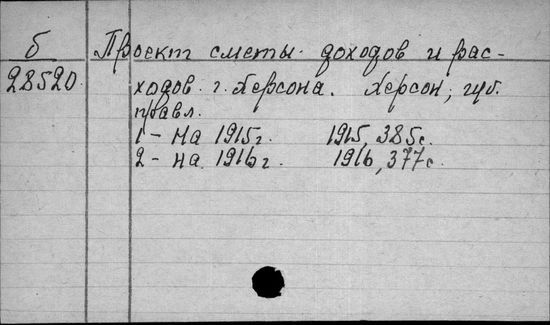 б
28520
Проект сметы доходов и рас-
ходов г. Херсона. Херсон, губ.
правл.
1 - на 1915г. 1915, 385с.
2 - на 1916г. 1916, 377с.